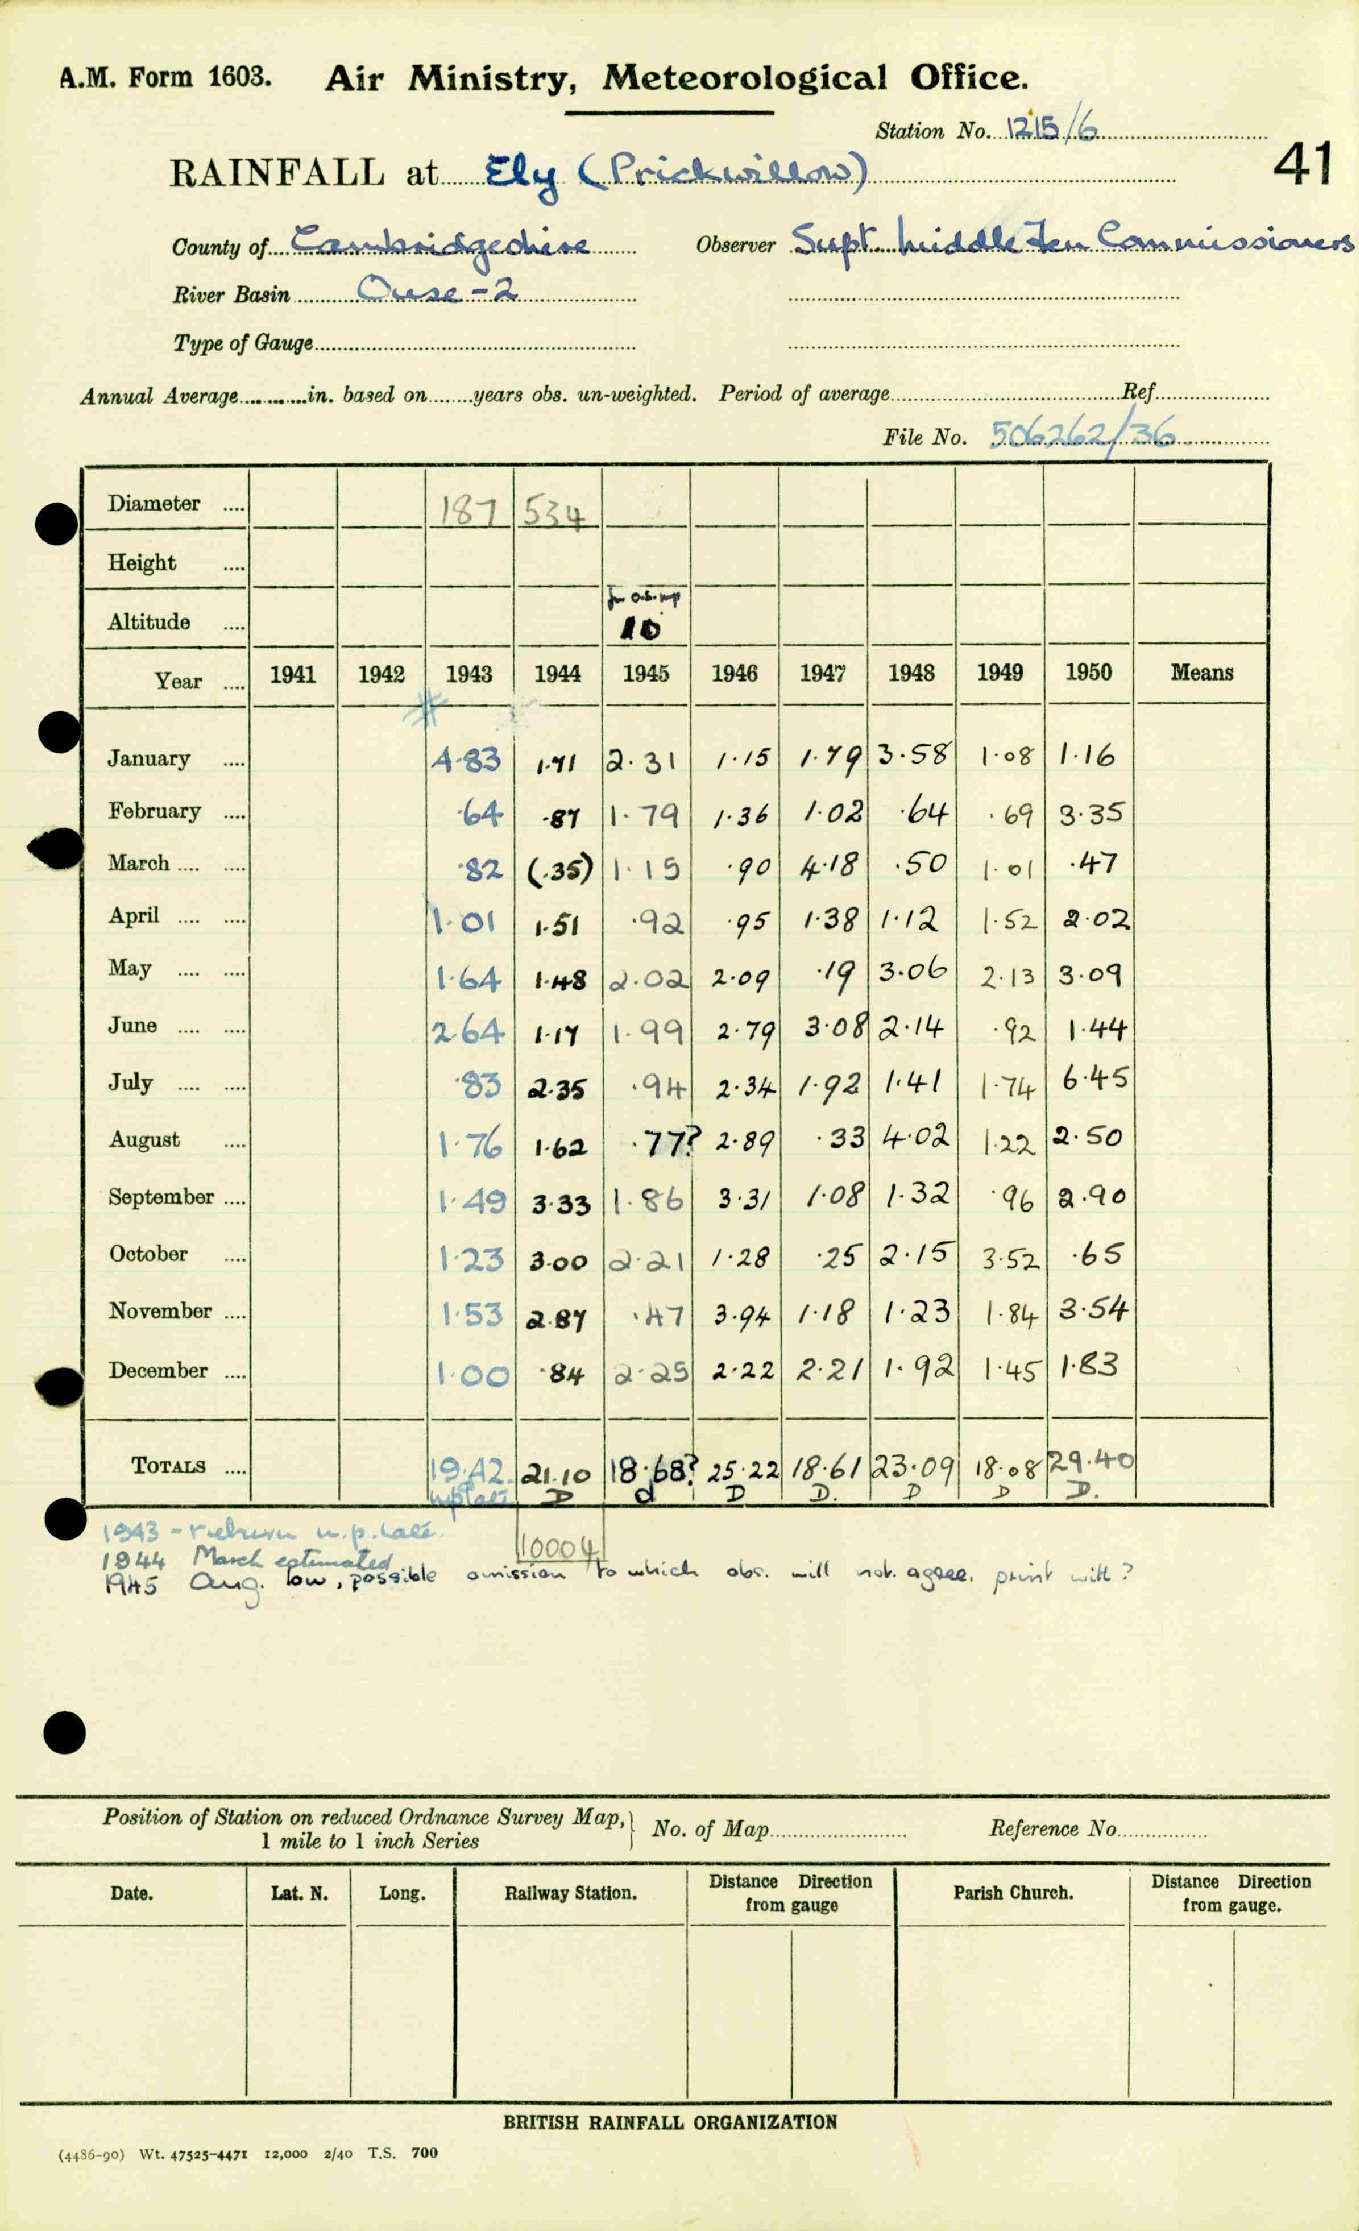 A.M. Form 1603. Air Ministry, Meteorological Office.
Station No. 1215/6
41
RAINFALL at Ely (Prickwillow)
County of Cambridgeshire Observer Supt. Middle Fen Commissioners
River Basin Ouse - 2
Type of Gauge
Annual Average in. based on years obs. un-weighted. Period of average Ref.
File No. 506262/36
Diameter 187 534
Height
Altitude 10
Year 1941 1942 1943 1944 1945 1946 1947 1948 1949 1950 Means
January 4.83 1.71 2.31 1.15 1.79 3.58 1.08 1.16
February .64 .87 1.79 1.36 1.02 .64 .69 3.35
March .82 (.35) 1.15 .90 4.18 .50 1.01 .47
April 1.01 1.51 .92 .95 1.38 1.12 1.52 2.02
May 1.64 1.48 2.02 2.09 .19 3.06 2.13 3.09
June 2.64 1.17 1.99 2.79 3.08 2.14 .92 1.44
July .83 2.35 .94 2.34 1.92 1.41 1.74 6.45
August 1.76 1.62 .77? 2.89 .33 4.02 1.22 2.50
September 1.49 3.33 1.86 3.31 1.08 1.32 .96 2.90
October 1.23 3.00 2.21 1.28 .25 2.15 3.52 .65
November 1.53 2.87 .47 3.94 1.18 1.23 1.84 3.54
December 1.00 .84 2.25 2.22 2.21 1.92 1.45 1.83
TOTALS 19.42 21.10 18.68? 25.22 18.61 23.09 18.08 29.40
D d D D. D D D.
1943 - return u.p. late.
10004
1944 March estimated
1945 Aug. low, possible omission to which obs. will not agree. print with ?
Position of Station on reduced Ordnance Survey Map, 1 mile to 1 inch Series } No. of Map Reference No.
Date. Lat. N. Long. Railway Station. Distance Direction from gauge Parish Church. Distance Direction from gauge.
BRITISH RAINFALL ORGANIZATION
(4486-90) Wt. 47525-4471 12,000 2/40 T.S. 700